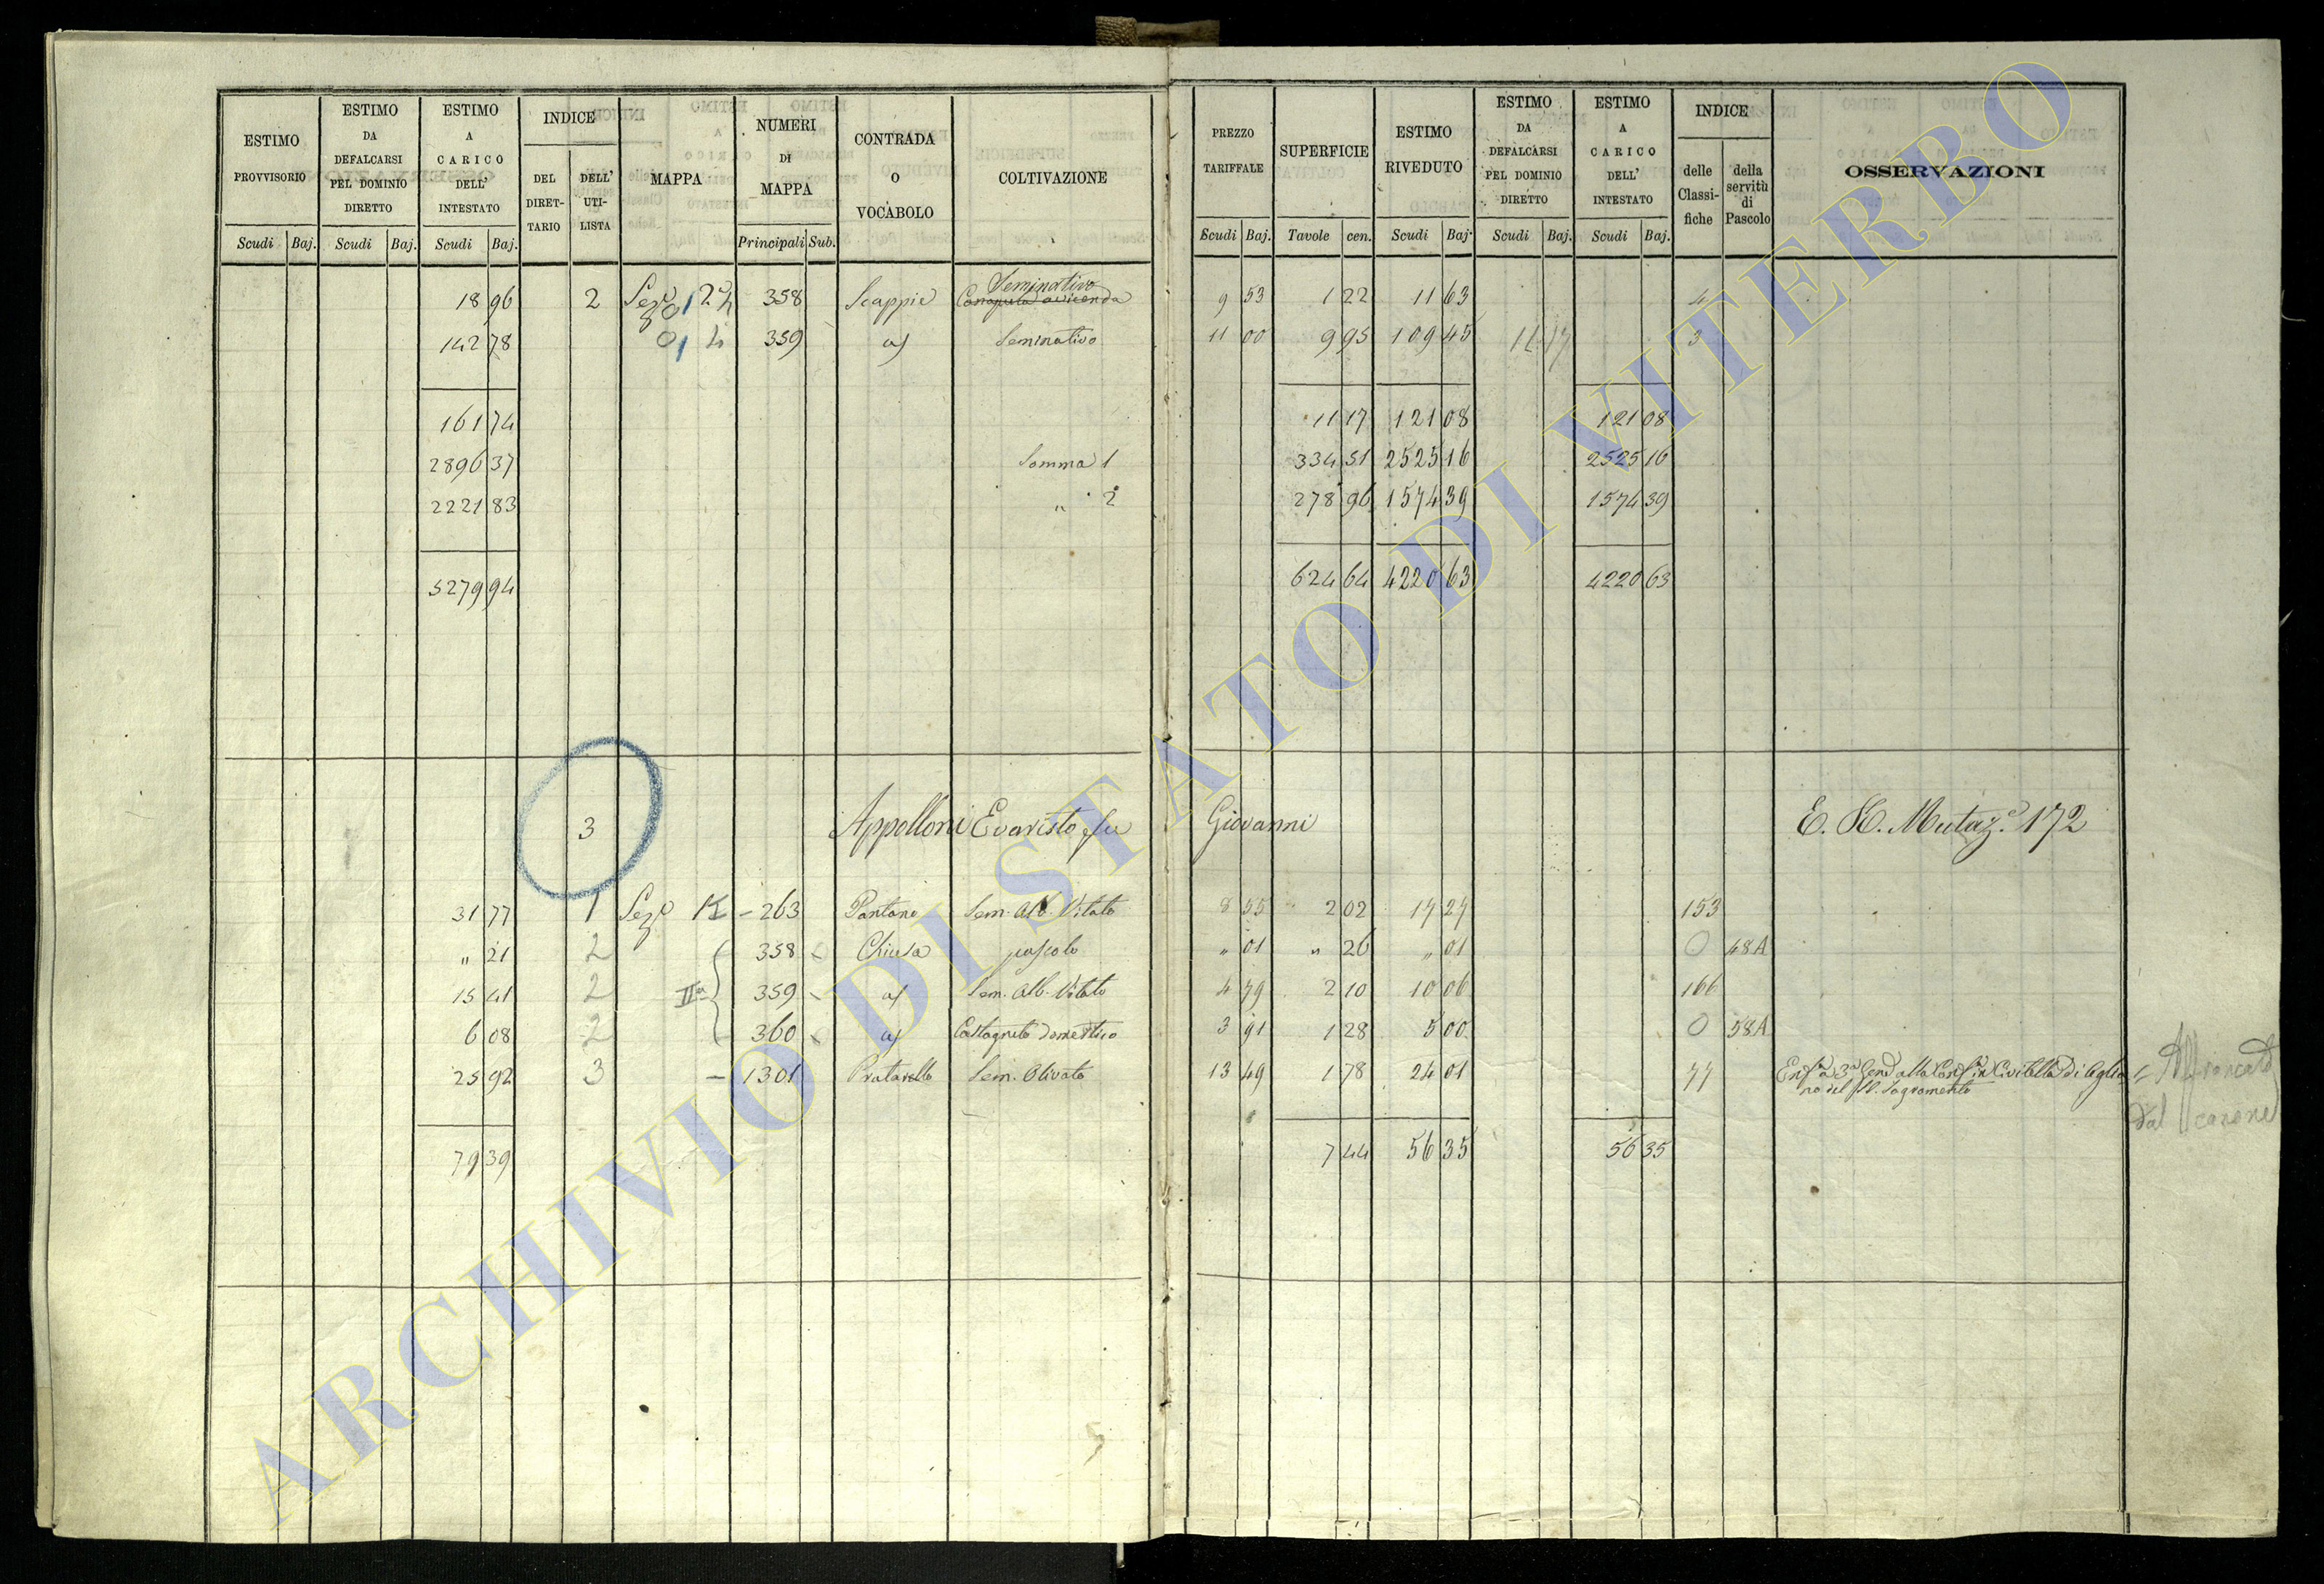 ESTIMO PROVVISORIO | ESTIMO DA DEFALCARSI PEL DOMINIO DIRETTO | ESTIMO A CARICO DELL' INTESTATO | INDICE DEL DIRETTARIO | DELL' UTILISTA | MAPPA | NUMERI DI MAPPA | CONTRADA O VOCABOLO | COLTIVAZIONE | PREZZO TARIFFALE | SUPERFICIE | ESTIMO RIVEDUTO | ESTIMO DA DEFALCARSI PEL DOMINIO DIRETTO | ESTIMO A CARICO DELL' INTESTATO | INDICE delle Classifiche | della servitù di Pascolo | OSSERVAZIONI
Scudi Baj. | Scudi Baj. | Scudi Baj. | Principali Sub. | Scudi Baj. | Tavole cen. | Scudi Baj. | Scudi Baj. | Scudi Baj.
Seminativo
18 96 2 Sez.e 358 Scappie Canapula a vicenda 9 53 1 22 11 63 4
142 78 359 a) Seminativo 11 00 9 95 109 45 3
161 74 11 17 121 08 121 08
2896 37 Somma 1 334 51 2525 16 2525 16
2221 83 " 2 278 96 1574 39 1574 39
5279 94 624 64 4220 63 4220 63
3 Appolloni Evaristo fu Giovanni E. H. Mutaz.e 172
31 77 1 Sez.e K - 263 Pantane Sem. Alb. Vitato 8 55 2 02 17 27 153
" 21 2 358 Chiusa pascolo " 01 " 26 " 01 0 48A
15 41 2 IIa 359 a) Sem. Alb. Vitato 4 79 2 10 10 06 166
6 08 2 360 a) Castagneto domestico 3 91 1 28 5 00 0 58A
25 92 3 - 1301 Pratarello Sem. Olivato 13 49 1 78 24 01 77 alla Civitella di Aglia
no del SS. Sagramento
Affrancato
dal canone
79 39 7 44 56 35 56 35
ARCHIVIO DI STATO DI VITERBO